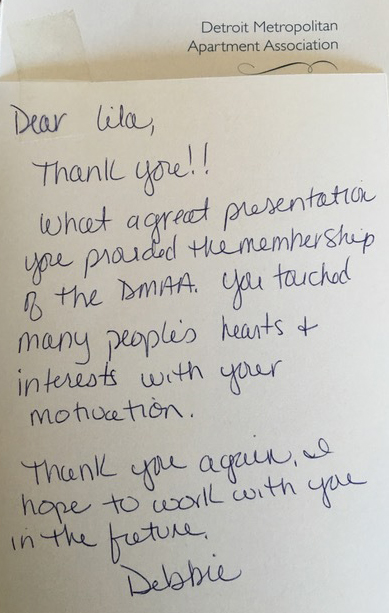 Detroit Metropolitan
Apartment Association
Dear Lila,
Thank you!!
What a great presentation
you provided the membership
of the DMAA. You touched
many people's hearts +
interests with your
motivation.
Thank you again, I
hope to work with you
in the future.
Debbie